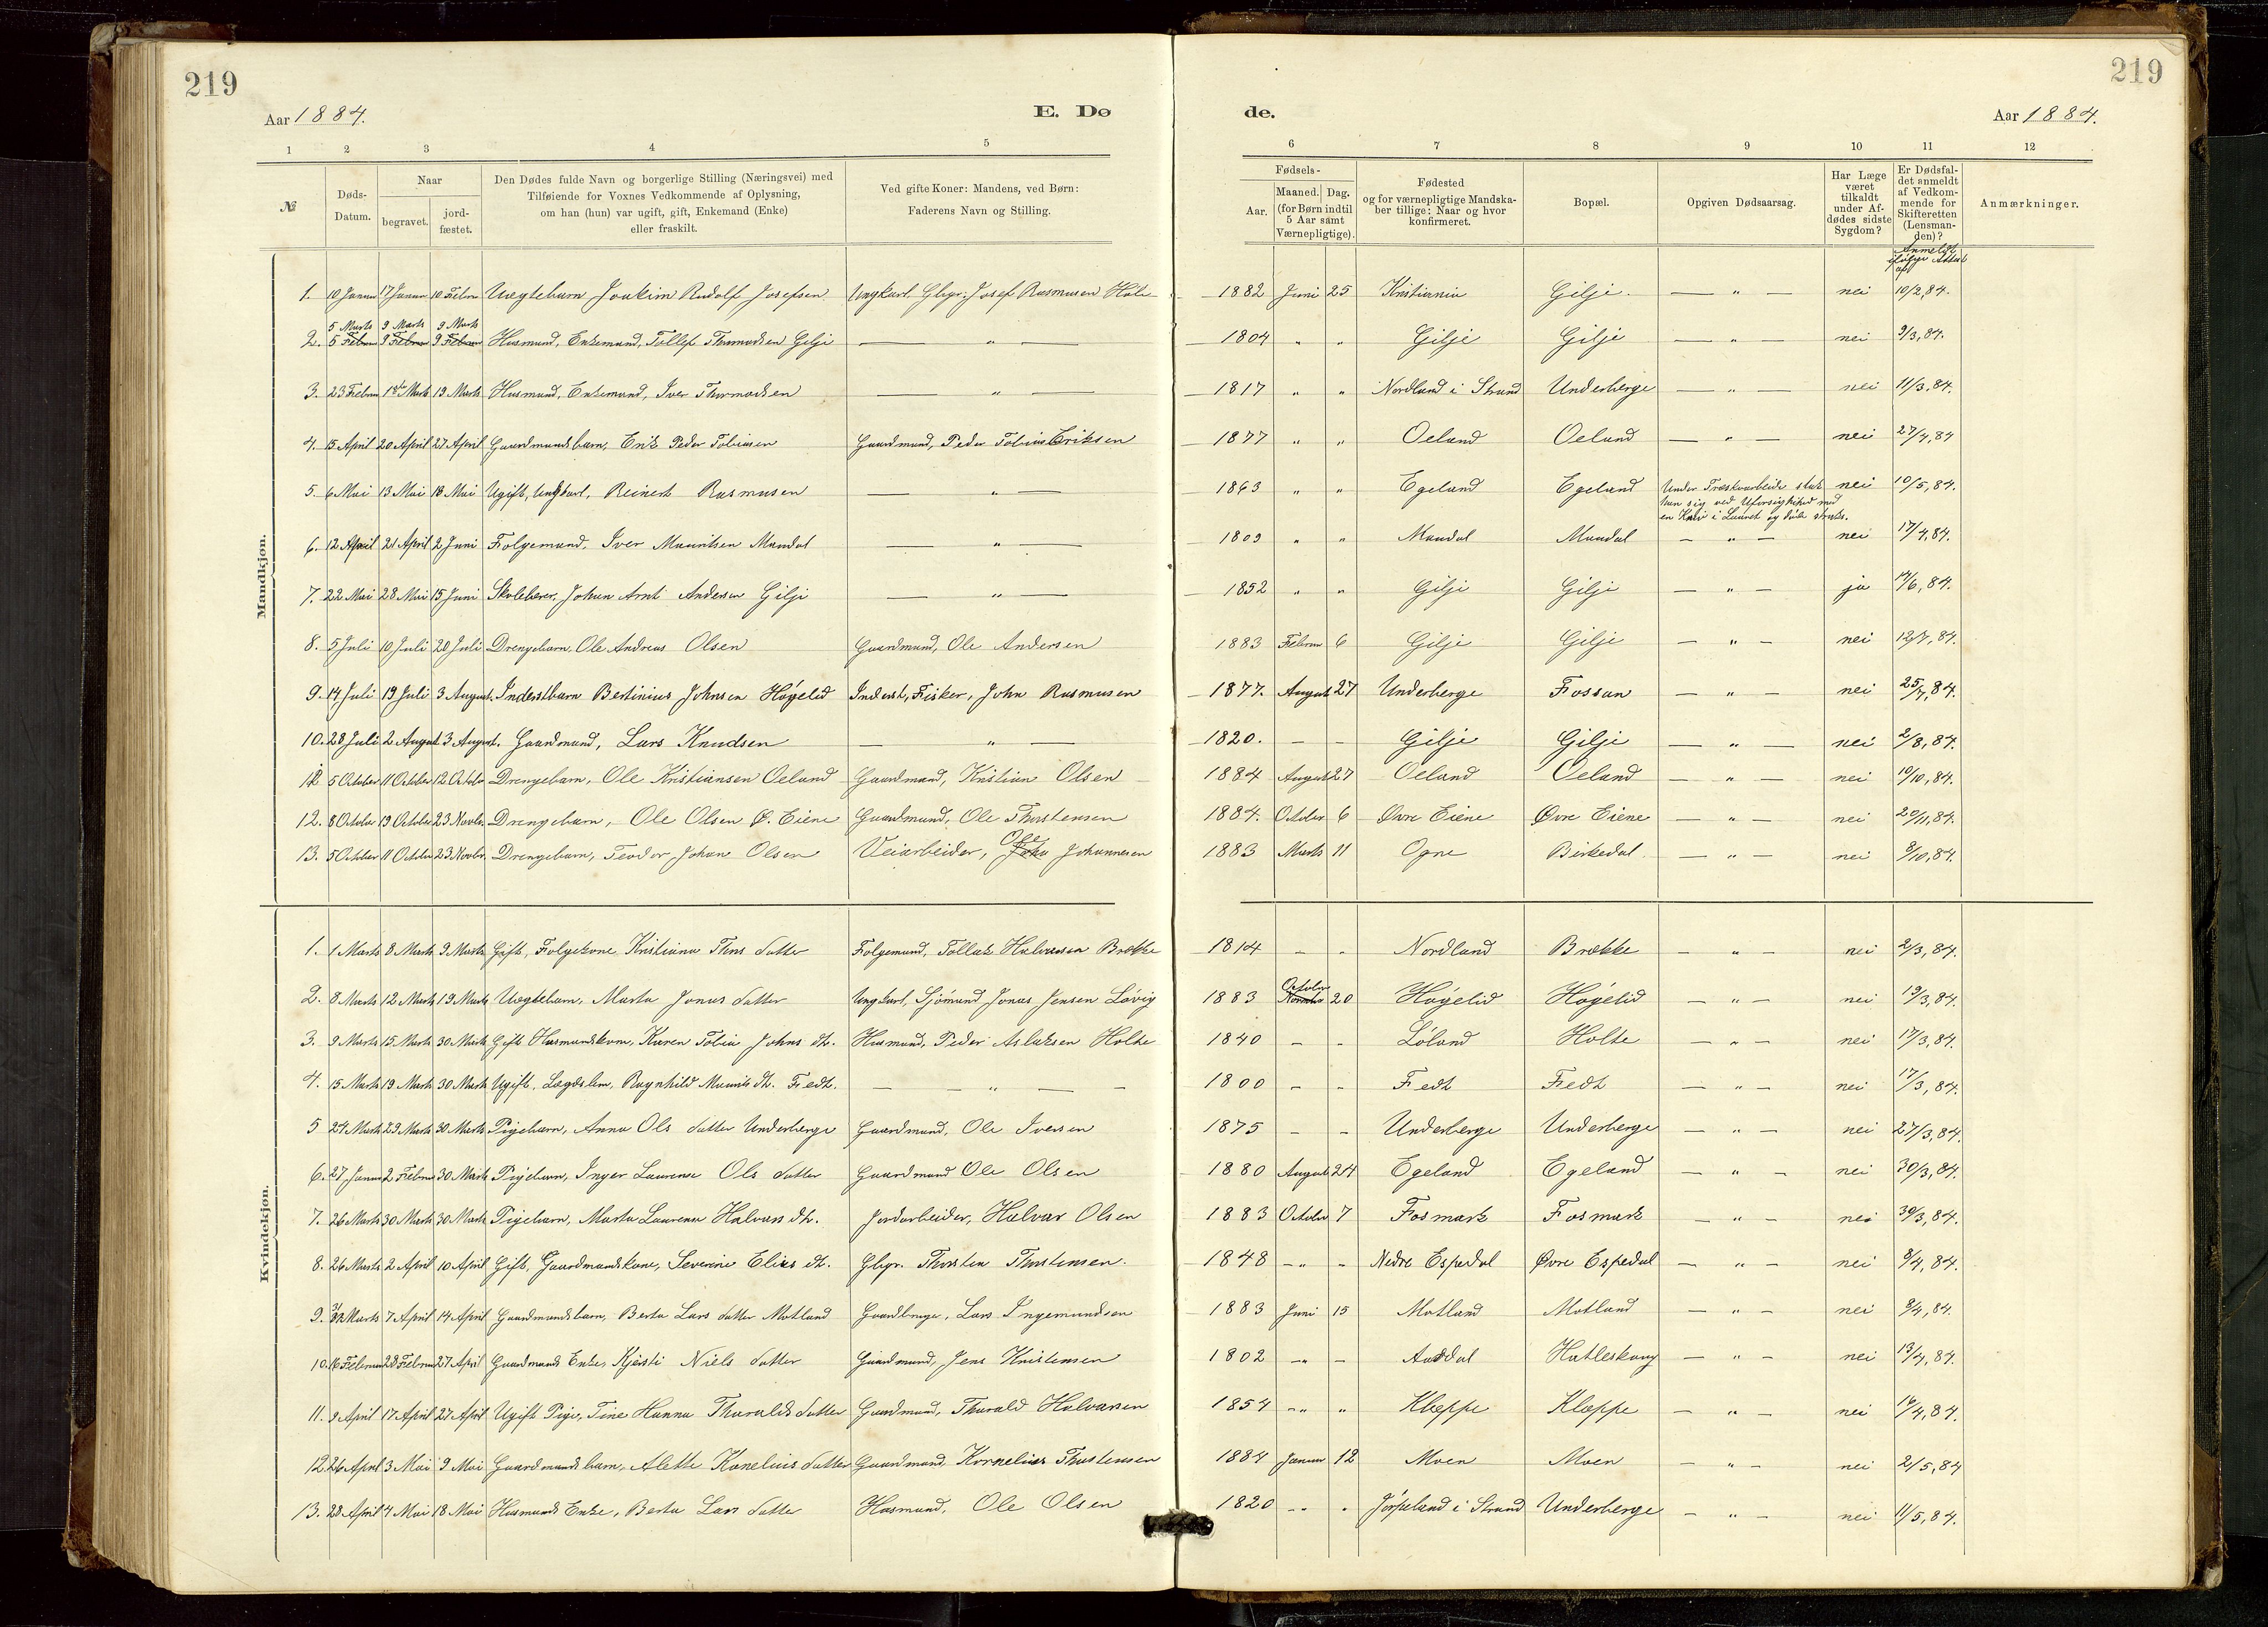 219
219
Aar 1884.
E. Dø
de.
Aar 1884.
1 2 3 4 5 6 7 8 9 10 11 12
№
Døds-Datum.
Naar
begravet.
jord-fæstet.
Den Dødes fulde Navn og borgerlige Stilling (Næringsvei) med
Tilføiende for Voxnes Vedkommende af Oplysning,
om han (hun) var ugift, gift, Enkemand (Enke)
eller fraskilt.
Ved gifte Koner: Mandens, ved Børn:
Faderens Navn og Stilling.
Fødsels-
Aar.
Maaned. Dag.
(for Børn indtil
5 Aar samt
Værnepligtige).
Fødested
og for værnepligtige Mandska-
ber tillige: Naar og hvor
konfirmeret.
Bopæl.
Opgiven Dødsaarsag.
Har Læge
været
tilkaldt
under Af-
dødes sidste
Sygdom?
Er Dødsfal-
det anmeldt
af Vedkom-
mende for
Skifteretten
(Lensman-
den)?
Anmærkninger.
Mandkjøn.
Anmeldt
ifølge Attest
af
1. 10 Januar 17 Januar 10 Febru Uægtebarn Joakim Rudolf Josefsen Ungkarl. Gbgr. Josef Rasmusen Hole 1882 Juni 25 Kristiania Gilje. — " — nei 10/2, 84.
5 Marts 9 Marts 9 Marts
2. 5 Febru 9 Febru 9 Febru Husmand, Enkemand, Tollef Thormodsen Gilje — " — 1804 " " Gilje Gilje — " — nei 9/3, 84.
3. 23 Febru 1ste Marts 19 Marts Husmand, Enkemand, Iver Thormodsen — " — 1817 " " Nordland i Strand Underberge — " — nei 11/3, 84.
4. 15 April 20 April 27 April Gaardmandsbarn, Erik Peder Tobiasen Gaardmand, Peder Tobias Eriksen 1877 " " Oeland Oeland — " — nei 27/4, 84
5. 6 Mai 13 Mai 18 Mai Ugift, Ungkarl, Reinert Rasmusen — " — 1863 " " Egeland Egeland Under Træskoarbeide stak
han sig ved Uforsigtighed med
en Kniv i Laaret og døde straks. nei 10/5, 84.
6. 12 April 21 April 2 Juni Folgemand, Iver Mauritsen Mandal — " — 1809 " " Mandal Mandal — " — nei 17/4, 84.
7. 22 Mai 28 Mai 15 Juni Skolelærer, Johan Arnt Andersen Gilje — " — 1852 " " Gilje Gilje — " — ja 14/6, 84.
8. 5 Juli 10 Juli 20 Juli Drengebarn, Ole Andreas Olsen Gaardmand, Ole Andersen 1883 Febru 6 Gilje Gilje — " — nei 12/7, 84.
9. 14 Juli 19 Juli 3 August. Inderstbarn Bertinius Johnsen Høgelid Inderst, Fisker, John Rasmusen 1877. August 27 Underberge Fossan — " — nei 25/7, 84.
10. 28 Juli 2 August 3 August. Gaardmand, Lars Knudsen — " — 1820. — — Gilje Gilje — " — nei 2/8, 84.
11. 5 October 11 October 12 Octobr Drengebarn, Ole Kristiansen Oeland Gaardmand, Kristian Olsen 1884 August 27 Oeland Oeland — " — nei 10/10, 84.
12. 8 Octobr 19 October 23 Novbr. Drengebarn, Ole Olsen Ø. Eiene Gaardmand, Ole Thorstensen 1884. October 6 Øvre Eiene Øvre Eiene — " — nei 20/11, 84.
13. 5 October 11 October 23 Novbr. Drengebarn, Teodor Johan Olsen Veiarbeider, Ole Johannesen 1883 Marts 11 Ogne Birkedal — " — nei 9/10, 84.
Kvindekjøn.
1. 1 Marts 8 Marts 9 Marts Gift, Folgekone, Kristiana Thors datter Folgemand, Tollak Halvarsen Brække 1814 — - Nordland Brække — " — nei 2/3, 84.
2. 8 Marts 12 Marts 19 Marts Uægtebarn, Marta Jonas datter Ungkarl, Sjømand Jonas Jensen Løvig 1883 Octobr 20 Høgelid Høgelid — " — nei 19/3, 84.
3. 9 Marts 15 Marts 30 Marts Gift Husmandskone, Karen Tobia Johns dt. Husmand, Peder Aslaksen Holte 1840 — - Løland Holte — " — nei 17/3, 84.
4. 15 Marts 19 Marts 30 Marts Ugift, Lægdslem, Ragnhild Maurits dt. Fredt. — " — 1800 — - Fredt Fredt — " — nei 17/3, 84.
5 24 Marts 29 Marts 30 Marts Pigebarn, Anna Ols datter Underberge Gaardmand, Ole Iversen 1875 — - Underberge Underberge — " — nei 27/3, 84.
6. 27 Januar 2 Febru 30 Marts Pigebarn, Inger Laurense Ols datter Gaardmand Ole Olsen 1880 August 24 Egeland Egeland — " — nei 30/3, 84.
7. 26 Marts 30 Marts 30 Marts Pigebarn, Marta Laurense Halvars dt. Jordarbeider, Halvar Olsen 1883 Octobr 7 Fosmark Fosmark — " — nei 30/3, 84.
8. 26 Marts 2 April 10 April Gift, Gaardmandskone, Severine Elias dt. Gbgr. Thorsten Thorstensen. 1848 — - Nedre Espedal Øvre Espedal — " — nei 8/4, 84.
9. Marts 7 April 14 April Gaardmandsbarn, Berta Lars datter Motland Gaardbruger, Lars Ingemundsen 1883 Juni 15 Motland Motland — " — nei 9/4, 84.
10. 16 Februar 28 Februar 27 April Gaardmands Enke, Kjersti Niels datter Gaardmand, Jens Kristensen 1802 — - Aaddal Hatleskaug — " — nei 13/4, 84.
11. 9 April 17 April 27 April Ugift Pige, Tine Hanna Thoralds datter Gaardmand, Thorald Halvarsen 1854 — " Kleppe Klæppe — " — nei 16/4, 84.
12. 26 April 3 Mai 9 Mai Gaardmandsbarn, Alette Kornelius datter Gaardmand, Kornelius Thorstensen 1884 Januar 12 Moen Moen — " — nei 2/5, 84
13. 28 April 4 Mai 18 Mai Husmands Enke, Berta Lars datter Husmand, Ole Olsen 1820 — - Jørpeland i Strand Underberge — " — nei 11/5, 84.